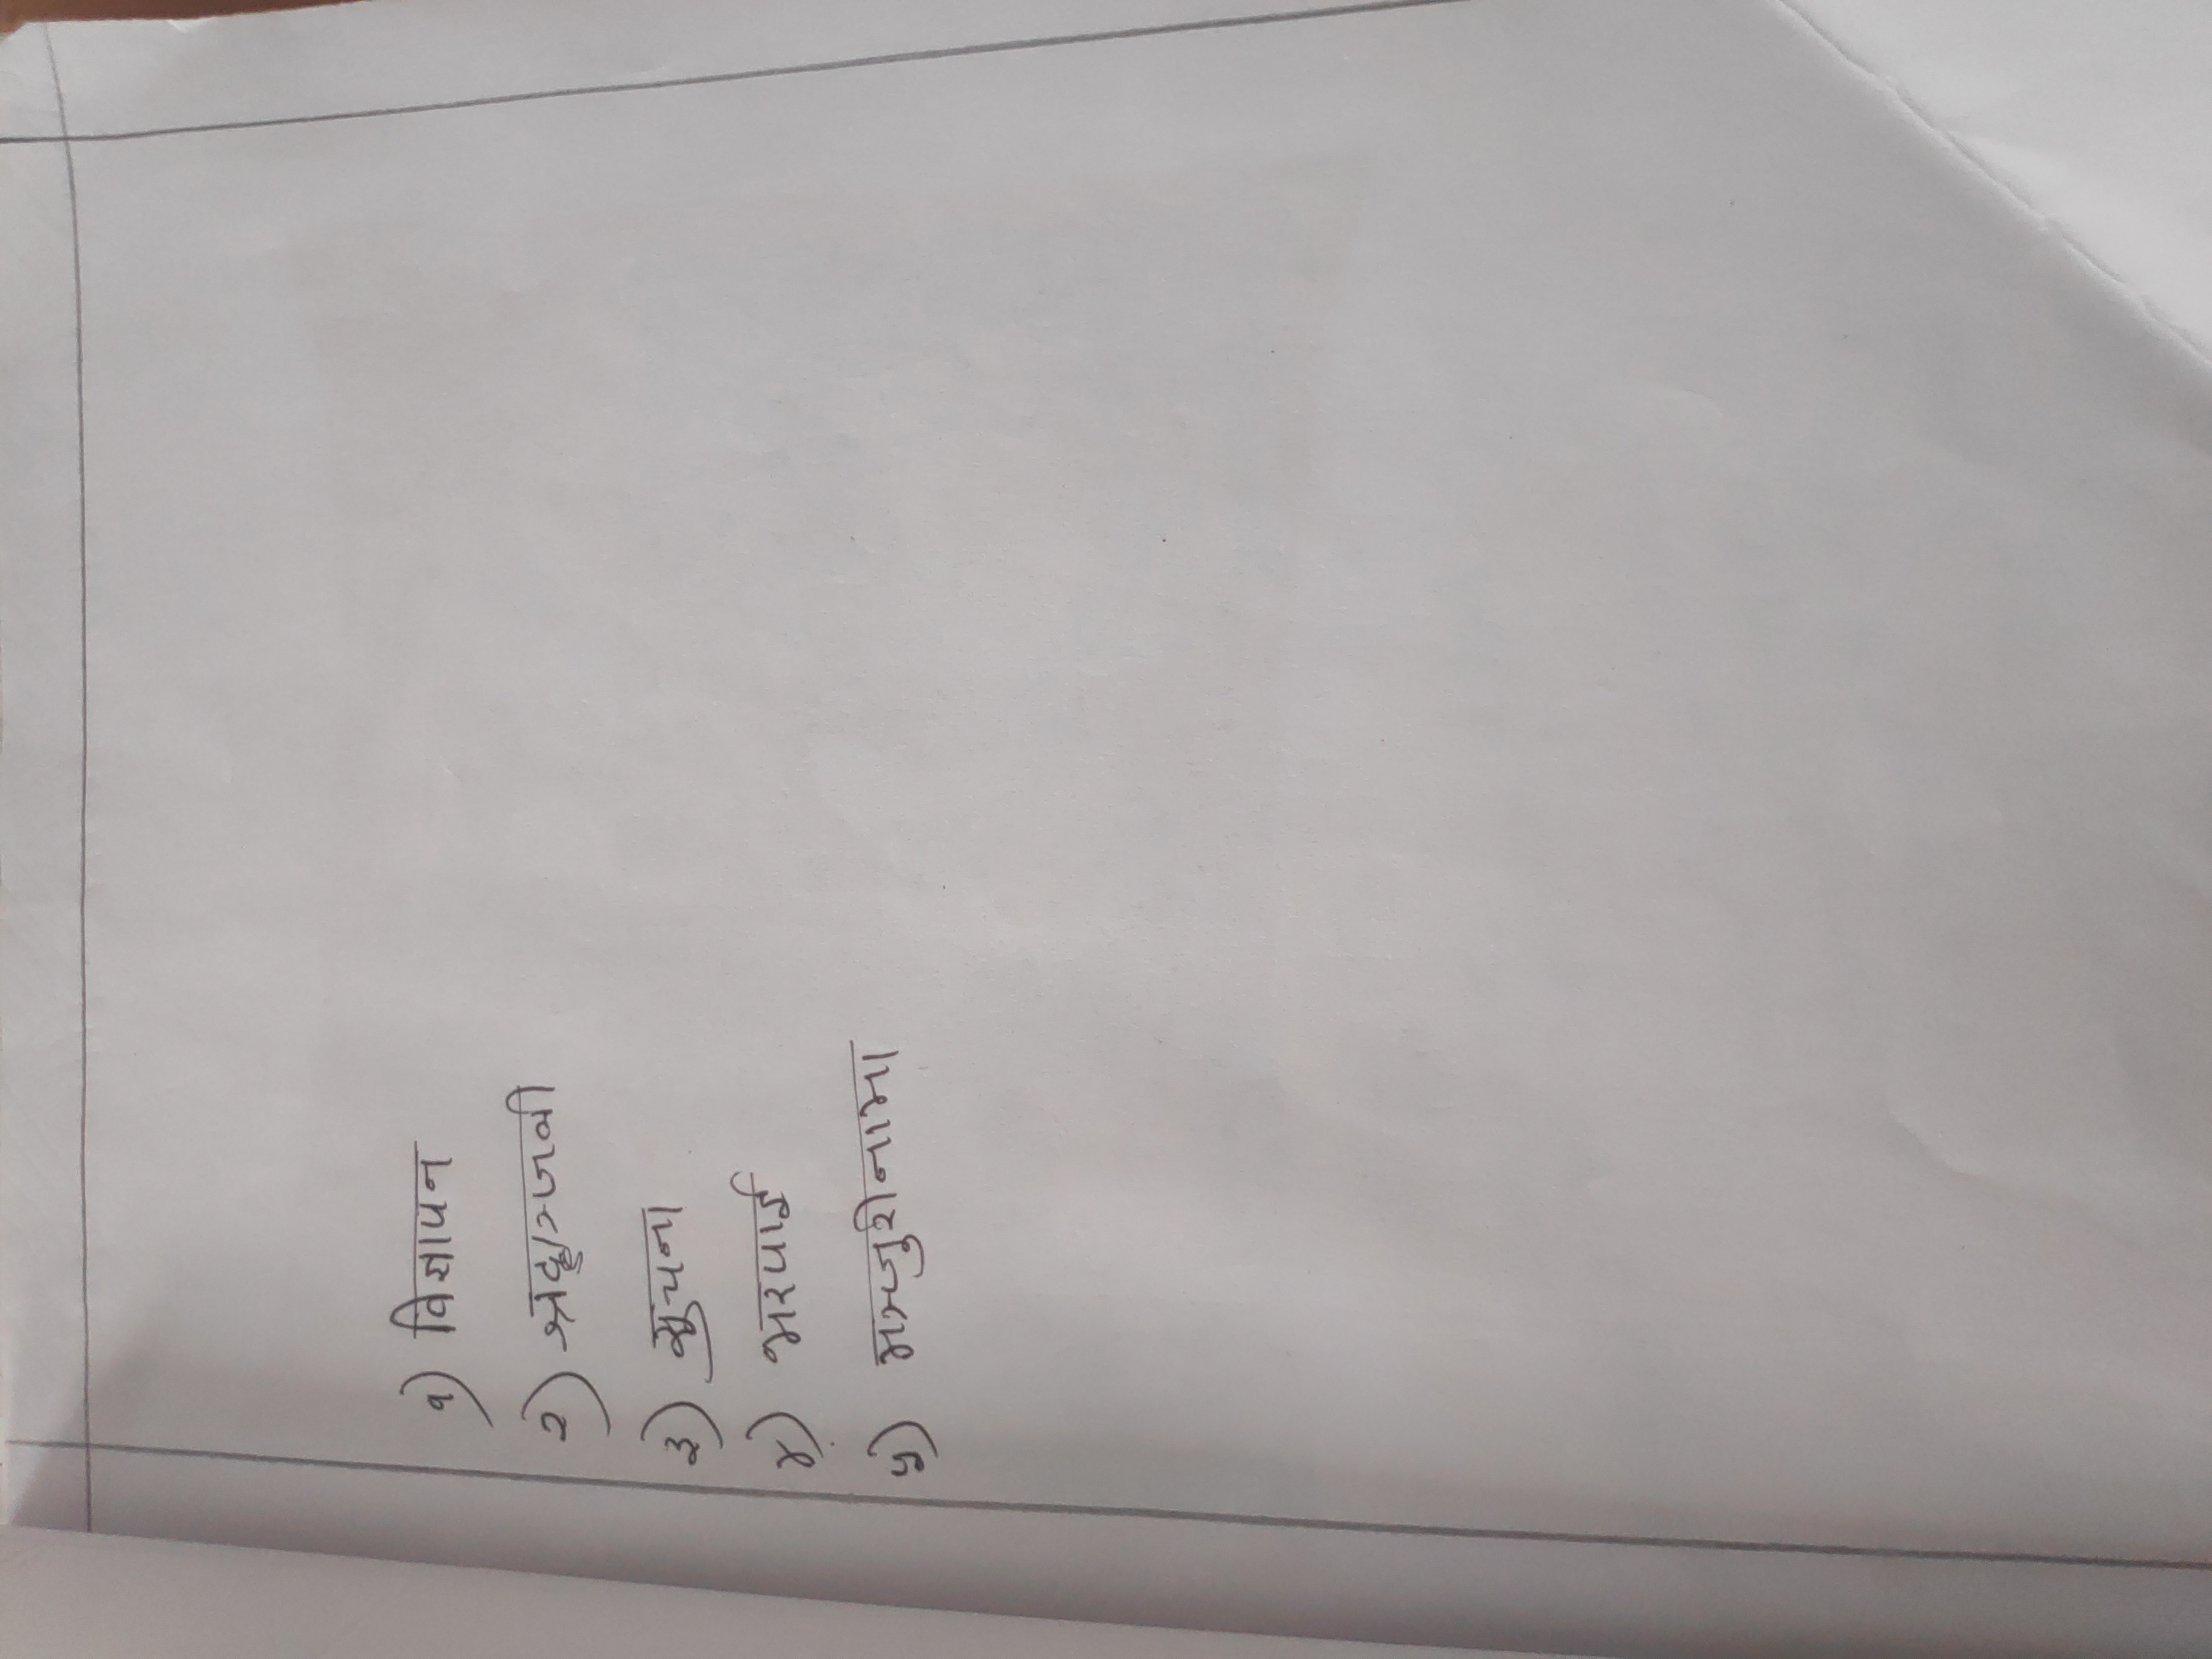 १) विज्ञापन
२) श्रद्धाञ्जली
३) सुचना
४) भरपाई
५) मञ्जुरीनामा